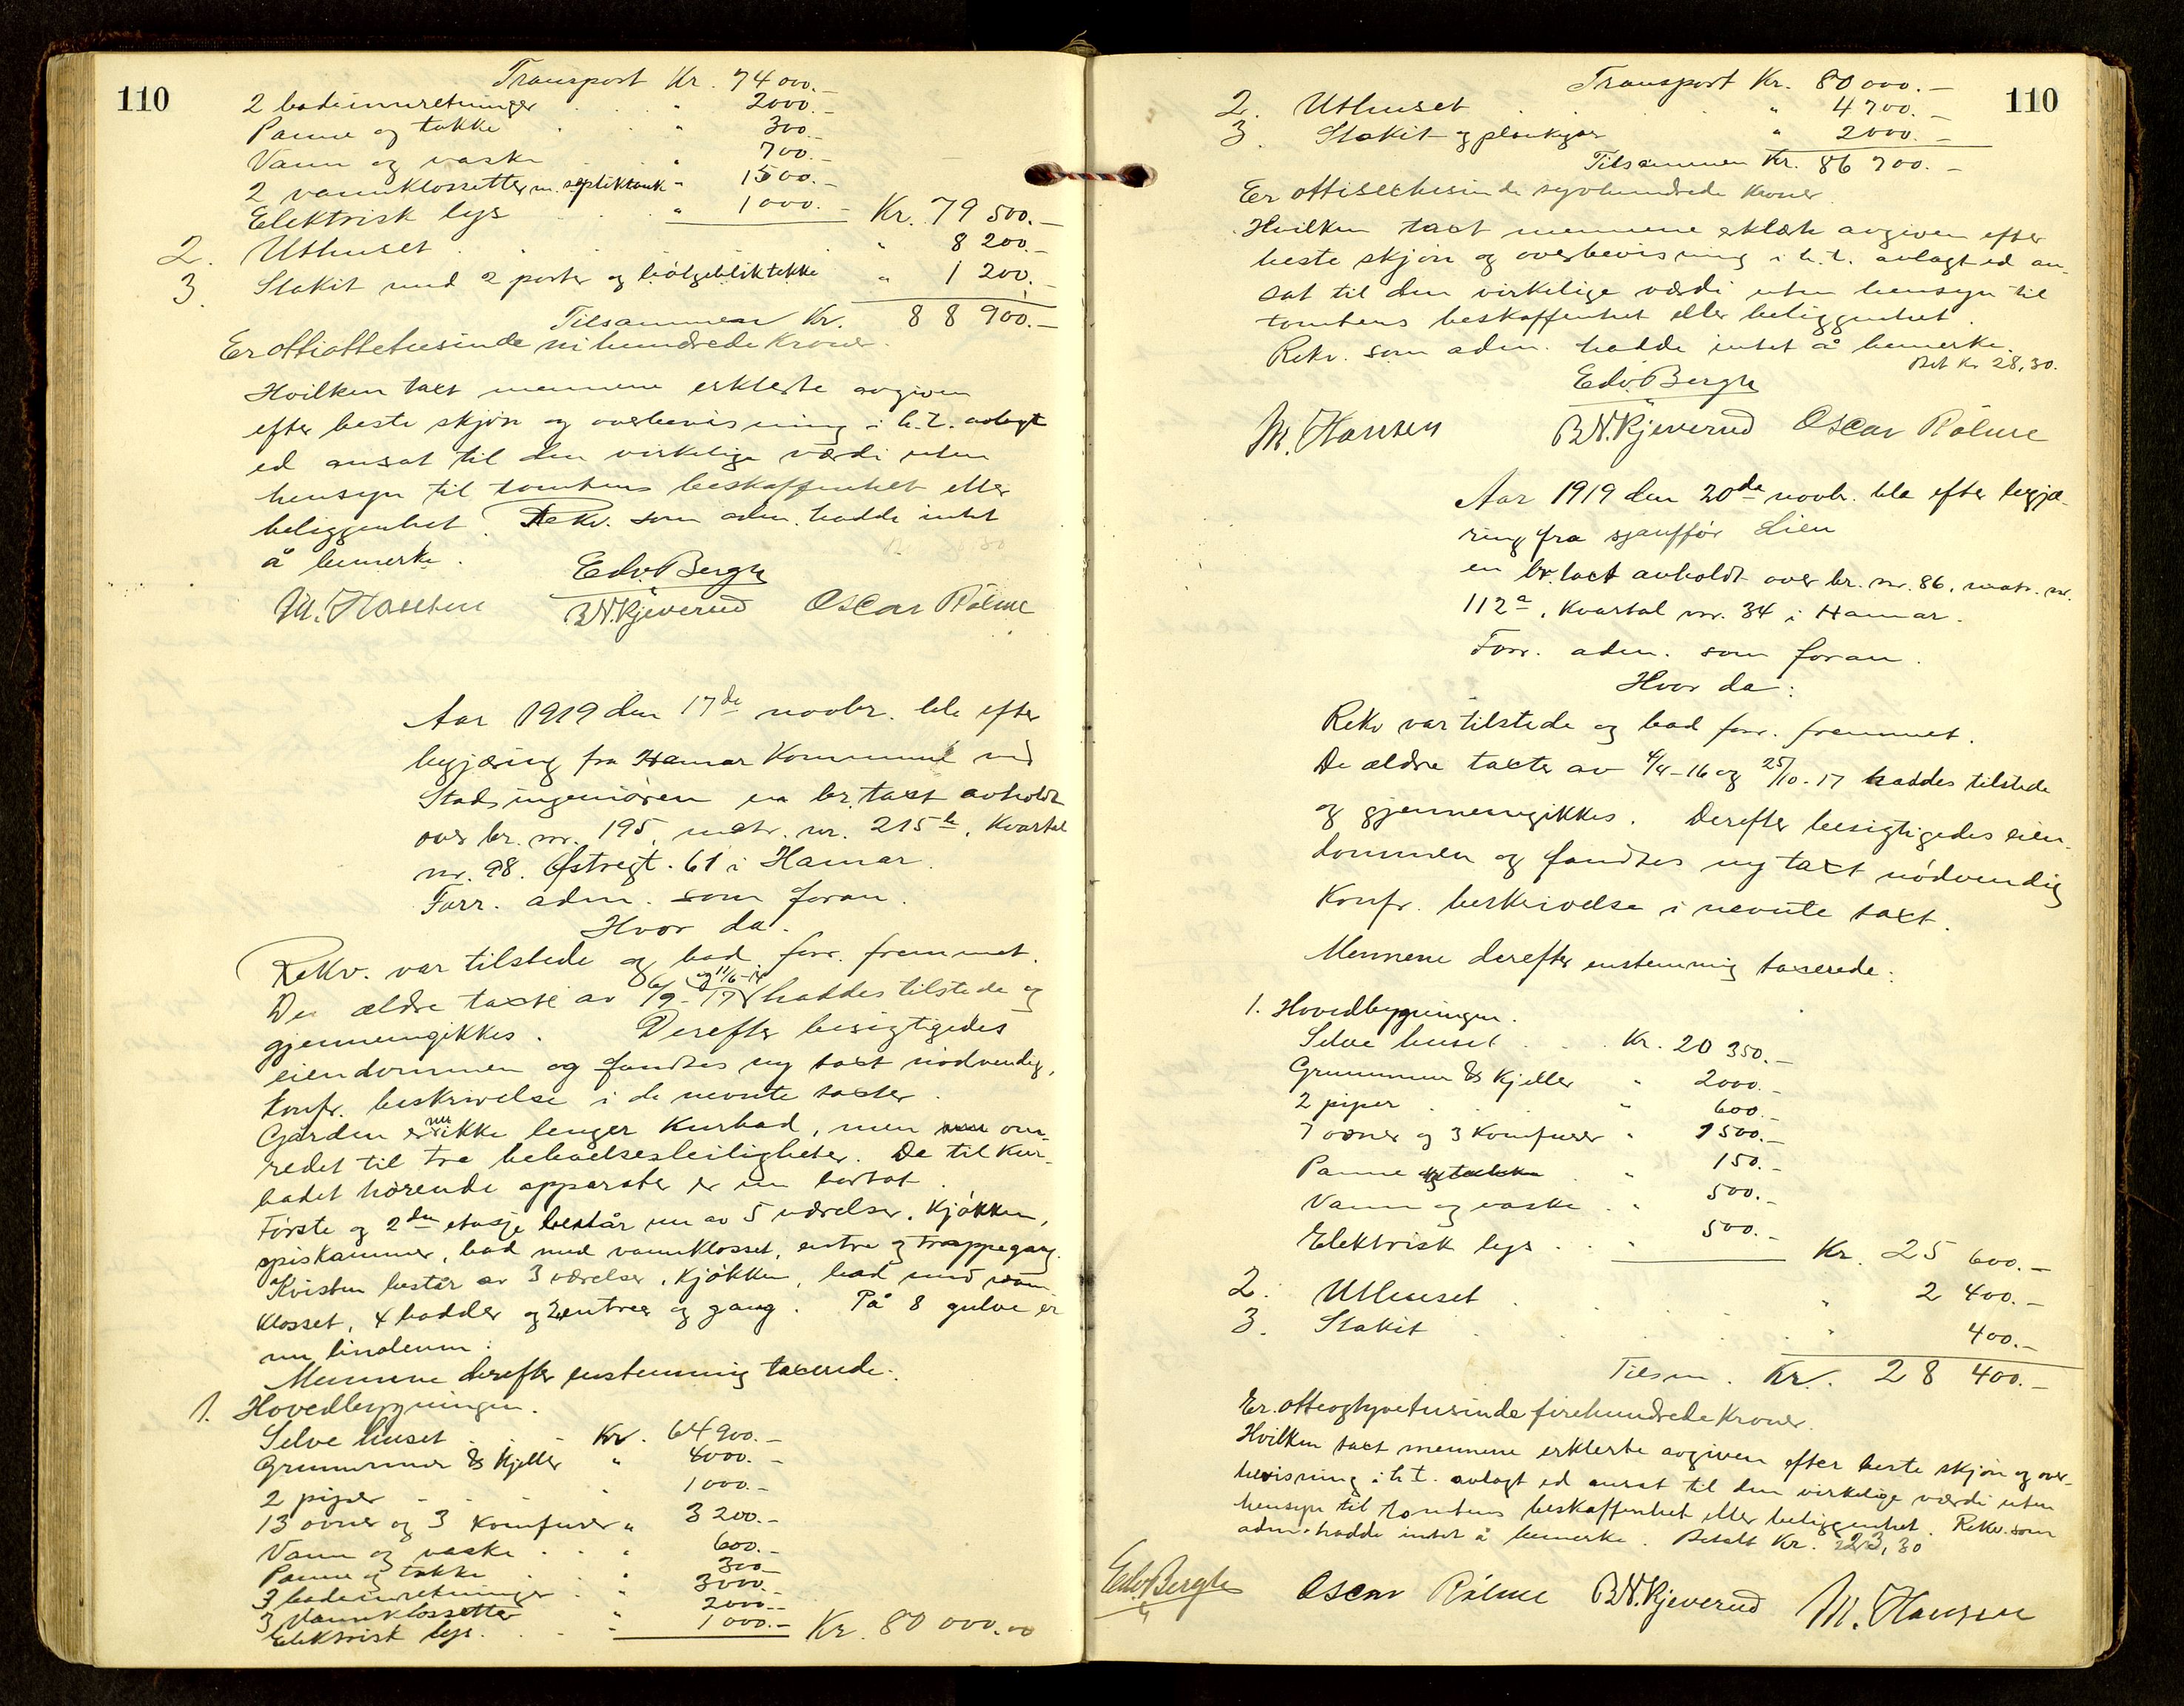 110
Transport Kr. 74 000.-
2 badeinnretninger . . . " 2000.-
Panne og takke . . " 300.-
Vann og vaske . . " 700.-
2 vannklossetter m. septiktank " 1500.-
Elektrisk lys . . . " 1000.- Kr. 79 500.-
2. Uthuset . . . . " 8 200.-
3. Stakit med 2 porter og bølgebliktekke " 1 200.-
Tilsammen Kr. 88 900.-
Er ottiottetusinde nihundrede Kroner.
Hvilken taxt mennene erklerte avgiven
efter beste skjøn og overbevisning i h.t. avlagt
ed ansat til den virkelige værdi uten
hensyn til tomtens beskaffenhet eller
beliggenhet. Rekv. som adm. hadde intet
å bemerke.
Edv. Bergh
M. Hansen B.N. Kjeverud Oscar Rølme
Aar 1919 den 17de novbr. ble efter
begjæring fra Hamar Kommune ved
Stadsingeniøren en br. taxt avholdt
over br. nr. 195, matr. nr. 215b, Kvartal
nr. 98. Østregt. 61 i Hamar.
Forr. adm. som foran.
Hvor da:
Rekv. var tilstede og bad forr. fremmet.
De ældre taxte av 6/9-17 og 11/6-14 haddes tilstede og
gjennemgikkes. Derefter besigtigedes
eiendommen og fandtes ny taxt nødvendig,
konfr. beskrivelse i de nevnte taxter.
Gården er nu ikke lenger Kurbad, men om-
redet til tre beboelsesleiligheter. De til Kur-
badet hørende apparater er nu bortat.
Første og 2den etasje består nu av 5 værelser, Kjøkken,
spiskammer, bad med vannklosset, entre og trappegang.
Kvisten består av 3 værelser, Kjøkken, bad med vann-
klosset, 4 bodder og 2 entreer og gang. På 8 gulve er
nu linoleum.
Mennene derefter enstemmig taxerede:
1. Hovedbygningen.
Selve huset . . . Kr. 64 900.-
Grunnmur & Kjeller " 4000.-
2 piper . . . " 1 000.-
13 ovner og 3 Komfurer " 3 200.-
Vann og vaske . . . " 600.-
Panne og takke . . " 300.-
3 badeinnretninger . . " 3000.-
3 Vannklossetter " 2000.-
Elektrisk lys . . . " 1 000.- Kr. 80 000.00
110
Transport Kr. 80 000.-
2. Uthuset . . . " 4 700.-
3. Stakit og plankgjær " 2000.-
Tilsammen Kr. 86 700.-
Er ottisekstusinde syvhundrede Kroner.
Hvilken taxt mennene erklærte avgiven efter
beste skjøn og overbevisning i h.t. avlagt ed an-
sat til den virkelige værdi uten hensyn til
tomtens beskaffenhet eller beliggenhet.
Rekv. som adm. hadde intet å bemerke.
Bet Kr 28,30.
Edv. Bergh
M. Hansen B.N. Kjeverud Oscar Rølme
Aar 1919 den 20de novbr. ble efter begjæ-
ring fra sjauffør Lien
en br. taxt avholdt over br. nr. 86, matr. nr.
112a, Kvartal nr. 34 i Hamar.
Forr. adm. som foran.
Hvor da:
Rekv var tilstede og bad forr. fremmet.
De ældre taxter av 4/4-16 og 25/10-17 haddes tilstede
og gjennemgikkes. Derefter besigtigedes eien-
dommen og fandtes ny taxt nødvendig
Konfr. beskrivelse i nevnte taxt.
Mennene derefter enstemmig taxerede:
1. Hovedbygningen.
Selve huset . . . Kr. 20 350.-
Grunnmur & Kjeller " 2000.-
2 piper . . . " 600.-
7 ovner og 3 Komfurer " 1500.-
Panne og takke . " 150.-
Vann og vaske . . " 500.-
Elektrisk lys . . . " 500.- Kr. 25 600.-
2. Uthuset . . . . " 2 400.-
3. Stakit . . . . " 400.-
Tilsm. Kr. 28 400.-
Er. otteogtyvetusinde firehundrede Kroner.
Hvilken taxt mennene erklerte avgiven efter beste skjøn og over-
bevisning i h.t. avlagt ed ansat til den virkelige værdi uten
hensyn til tomtens beskaffenhet eller beliggenhet. Rekv. som
adm. hadde intet å bemerke. Betalt Kr. 23,30
Edv. Bergh Oscar Rølme B.N. Kjeverud M. Hansen